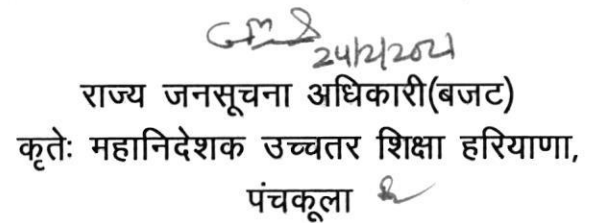 24/2/2021
राज्य जनसूचना अधिकारी(बजट)
कृतेः महानिदेशक उच्चतर शिक्षा हरियाणा,
पंचकूला